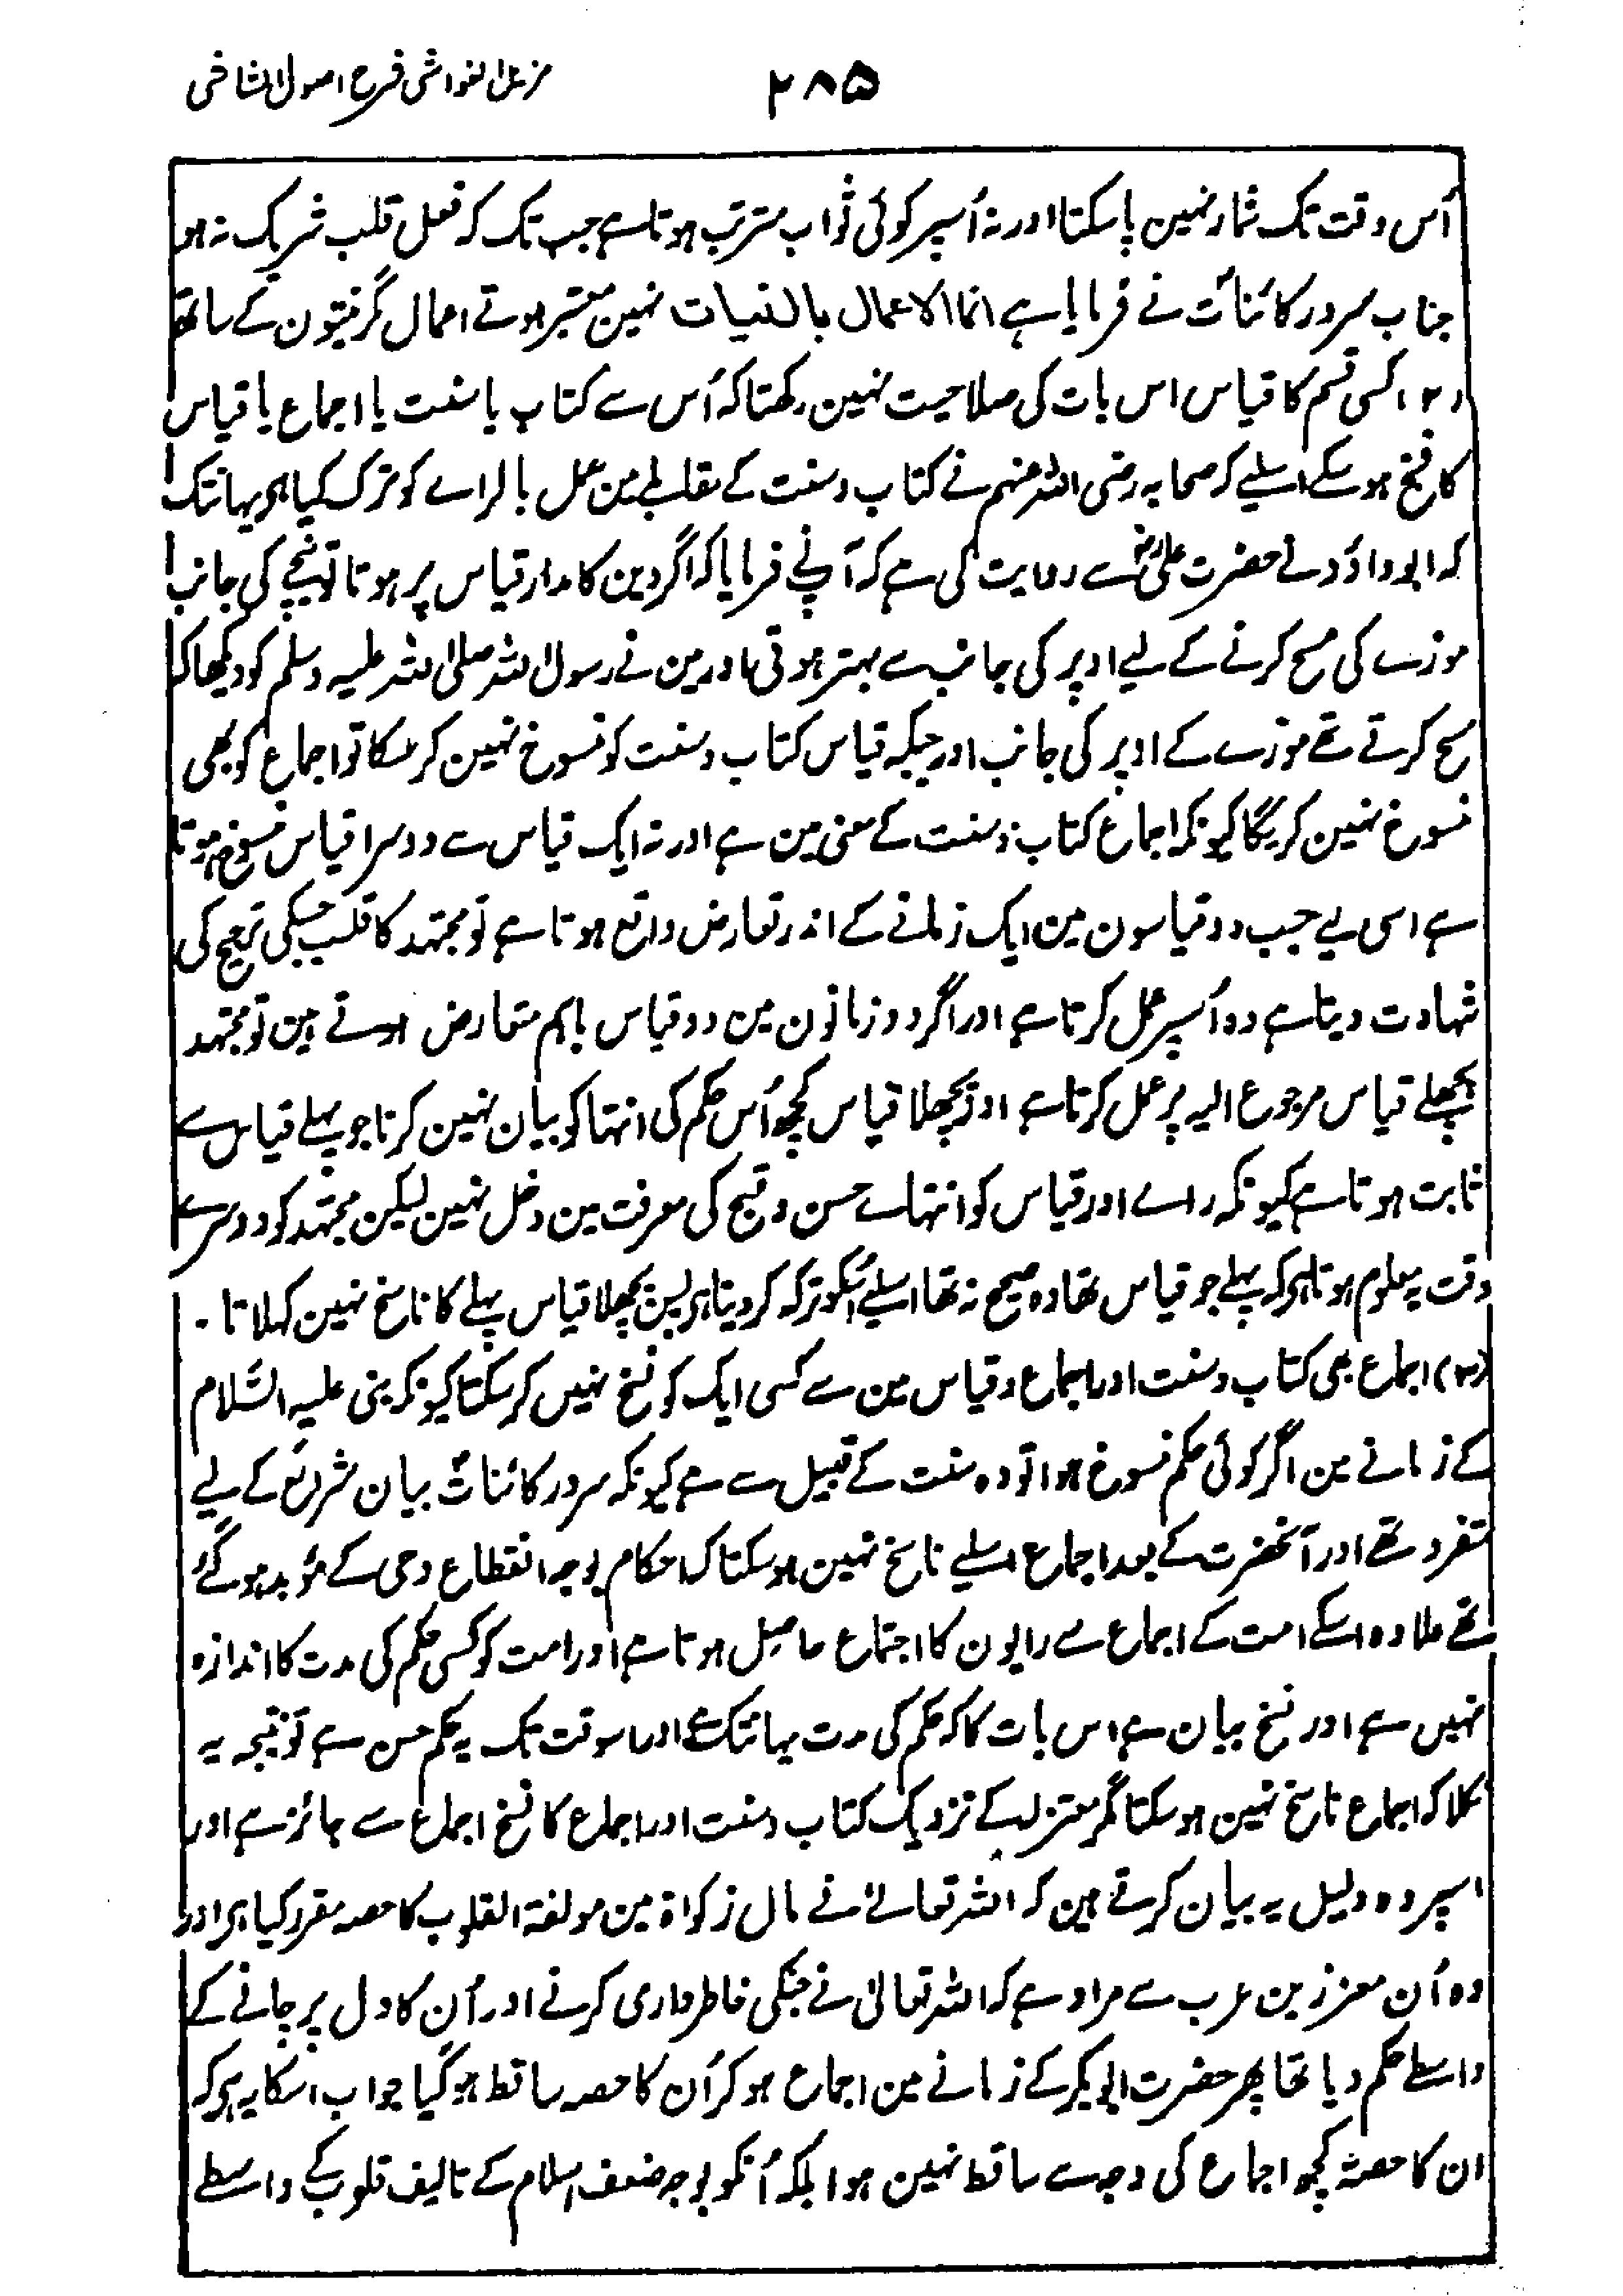 مزیل الغواشی شرح اصول الشاشی
۲۸۵
اُس وقت تک شمار نہین پا سکتا اور نہ اُسپر کوئی ثواب مترتب ہوتا ہے جب تک کہ فعل قلب شریک نہ ہو
جناب سرور کائنات نے فرمایا ہے انما الاعمال بالنیات نہین معتبر ہوتے اعمال مگر نیتون کے ساتھ
(۲) کسی قسم کا قیاس اس بات کی صلاحیت نہین رکھتا کہ اُس سے کتاب یا سنت یا اجماع یا قیاس
کا نسخ ہو سکے اسلیے کہ صحابہ رضی اللہ عنہم نے کتاب و سنت کے مقابلے مین عمل بالراے کو ترک کیا ہی یہانتک
کہ ابو داؤد نے حضرت علیؓ سے روایت کی ہے کہ آپنے فرمایا کہ اگر دین کا مدار قیاس پر ہوتا تو نیچے کی جانب
موزے کی مسح کرنے کے لیے اوپر کی جانب سے بہتر ہوتی اور مین نے رسول اللہ صلی اللہ علیہ وسلم کو دیکھا کہ
مسح کرتے تھے موزے کے اوپر کی جانب اور جبکہ قیاس کتاب و سنت کو منسوخ نہین کر سکا تو اجماع کو بھی
منسوخ نہین کریگا کیونکہ اجماع کتاب و سنت کے معنی مین ہے اور نہ ایک قیاس سے دوسرا قیاس منسوخ ہوتا
ہے اسی لیے جب دو قیاسون مین ایک زمانے کے اندر تعارض واقع ہوتا ہے تو مجتہد کا قلب جسکی ترجیح کی
شہادت دیتا ہے وہ اُسپر عمل کرتا ہے اور اگر دو زمانون مین دو قیاس باہم متعارض ہوتے ہین تو مجتہد
پچھلے قیاس مرجوع الیہ پر عمل کرتا ہے اور پچھلا قیاس کچھ اُس حکم کی انتہا کو بیان نہین کرتا جو پہلے قیاس سے
ثابت ہوتا ہے کیونکہ راے اور قیاس کو انتہاے حسن و قبح کی معرفت مین دخل نہین لیکن مجتہد کو دوسرے
وقت یہ معلوم ہوتا ہی کہ پہلے جو قیاس تھا وہ صحیح نہ تھا اسلیے اُسکو ترک کر دیتا ہی پس پچھلا قیاس پہلے کا ناسخ نہین کہلاتا ۔
(۳) اجماع بھی کتاب و سنت اور اجماع و قیاس مین سے کسی ایک کو نسخ نہیں کر سکتا کیونکہ نبی علیہ السّلام
کے زمانے مین اگر کوئی حکم منسوخ ہوا تو وہ سنت کے قبیل سے ہے کیونکہ سرور کائنات بیان شرائع کے لیے
متفرد تھے اور آنحضرت کے بعد اجماع اسلیے ناسخ نہین ہو سکتا کہ احکام بوجہ انقطاع وحی کے مؤبد ہو گئے
تھے علاوہ اسکے امت کے اجماع سے رایون کا اجتماع حاصل ہوتا ہے اور امت کو کسی حکم کی مدت کا اندازہ
نہیں ہے اور نسخ بیان ہے اس بات کا کہ حکم کی مدت یہانتک ہے اور اسوقت تک یہ حکم حسن ہے تو نتیجہ یہ
نکلا کہ اجماع ناسخ نہین ہو سکتا مگر معتزلہ کے نزدیک کتاب و سنت اور اجماع کا نسخ اجماع سے جائز ہے اور
اسپر وہ دلیل یہ بیان کرتے ہین کہ اللہ تعالےٰ نے مال زکواة مین مولفة القلوب کا حصہ مقرر کیا ہی اور
وہ اُن معززین عرب سے مراد ہے کہ اللہ تعالیٰ نے جنکی خاطر داری کرنے اور اُن کا دل پرچانے کے
واسطے حکم دیا تھا پھر حضرت ابو بکر کے زمانے مین اجماع ہو کر اُن کا حصہ ساقط ہو گیا جواب اسکا یہ ہی کہ
ان کا حصہ کچھ اجماع کی وجہ سے ساقط نہین ہوا بلکہ اُنکو بوجہ ضعف اسلام کے تالیف قلوب کے واسطے